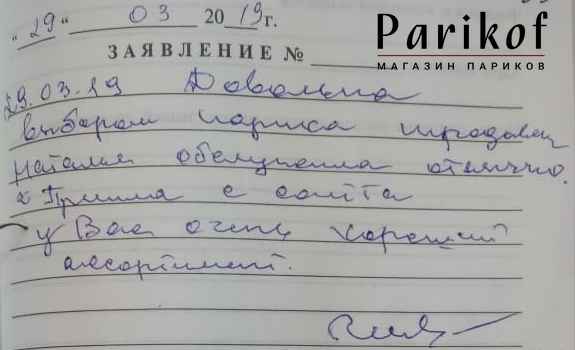 "29" 03 2019г.
Parikof
МАГАЗИН ПАРИКОВ
ЗАЯВЛЕНИЕ №
29.03.19 Довольна
выбором парика продавец
Наталья обслужила отлично.
Пришла с сайта
у Вас очень хороший
ассортимент.